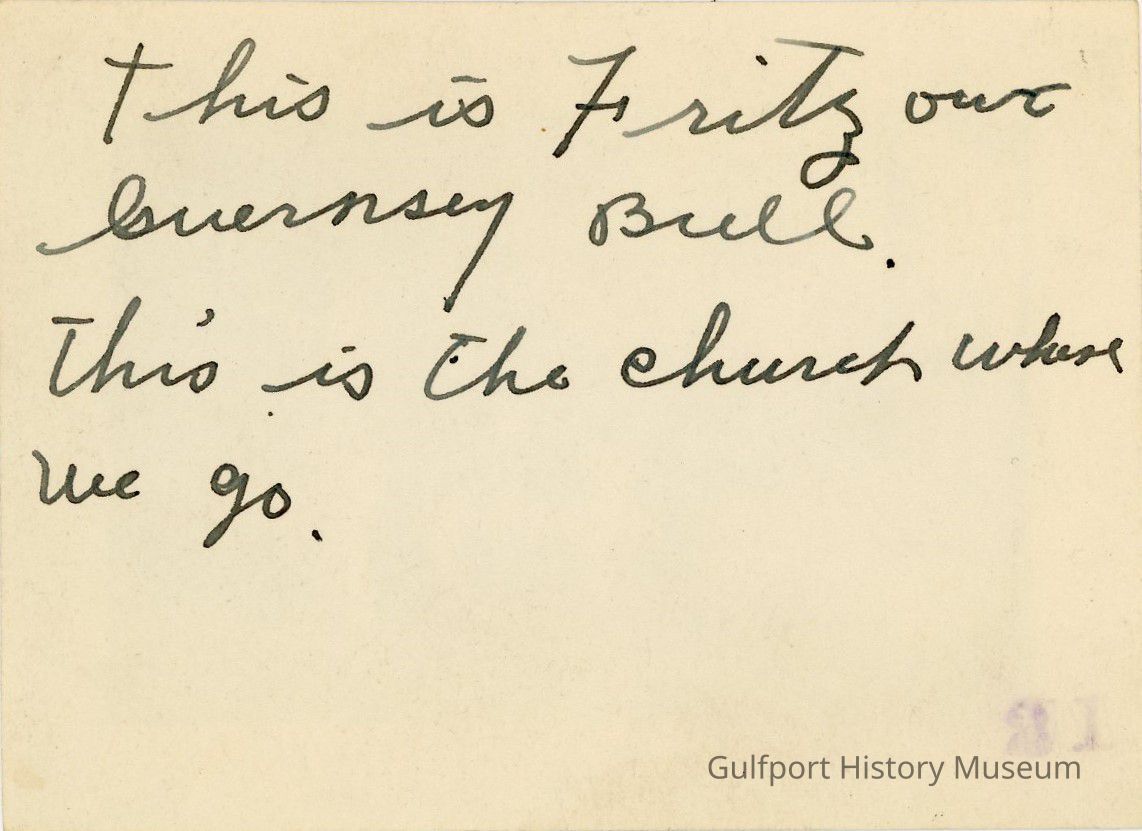 This is Fritz our
Guernsey Bull.
This is the church where
we go.
Gulfport History Museum